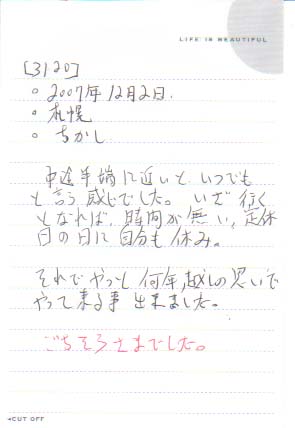 LIFE IS BEAUTIFUL
[3120]
○ 2007年12月2日.
○ 札幌
○ ちかし
中途半端に近いと いつでも
と言う感じでした。いざ 行く
となれば、時間が無い、定休
日の日に自分も 休み。
それでやっと 何年越しの思いで
やって来る事 出来ました。
ごちそうさまでした。
◂CUT OFF